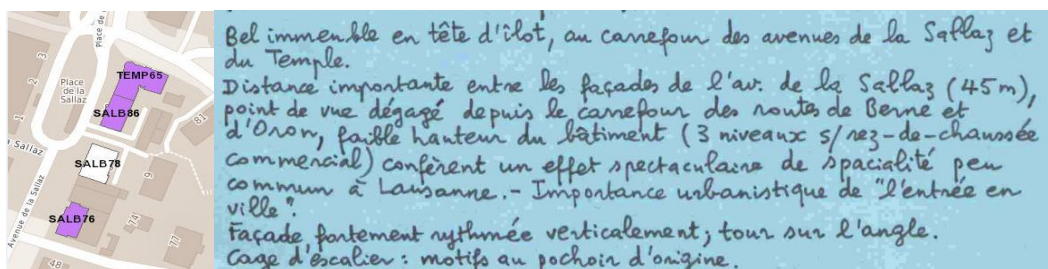 Place de
TEMP65
2
3
Place
de la
Sallaz
SALB86
1
81
a Sallaz
SALB78
9
Avenue de la Sallaz
SALB76
74
77
48
Bel immeuble en tête d'îlot, au carrefour des avenues de la Sallaz et
du Temple.
Distance importante entre les façades de l'av. de la Sallaz (45m),
point de vue dégagé depuis le carrefour des routes de Berne et
d'Oron, faible hauteur du bâtiment (3 niveaux s/rez-de-chaussée
commercial) confèrent un effet spectaculaire de spacialité peu
commun à Lausanne. - Importance urbanistique de "l'entrée en
ville".
Façade fortement rythmée verticalement; tour sur l'angle.
Cage d'escalier : motifs au pochoir d'origine.